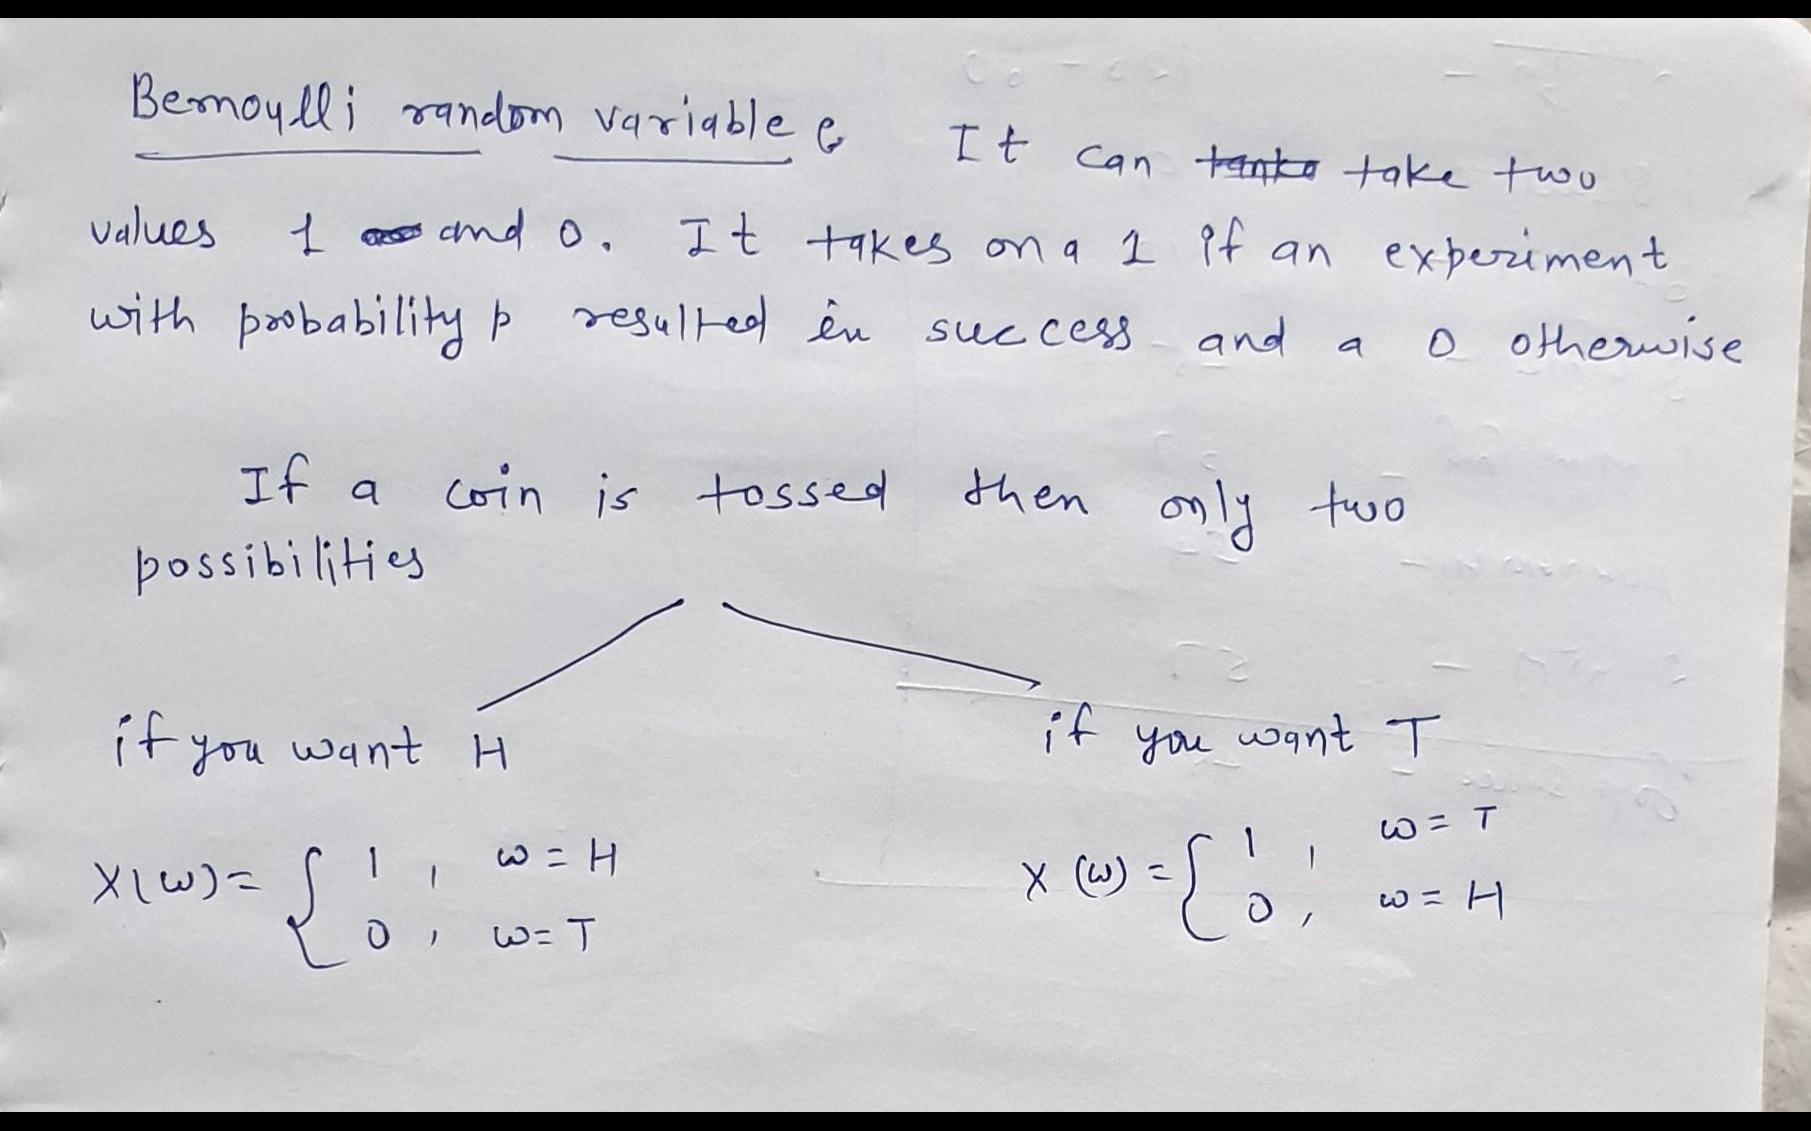 Bernoulli random variable : It can tanke take two
values 1 and 0. It takes on a 1 if an experiment
with probability p resulted in success and a 0 otherwise
If a coin is tossed then only two
possibilities
if you want H
if you want T
X(ω) = { 1 , ω = H
0 , ω = T
X (ω) = { 1 , ω = T
0 , ω = H